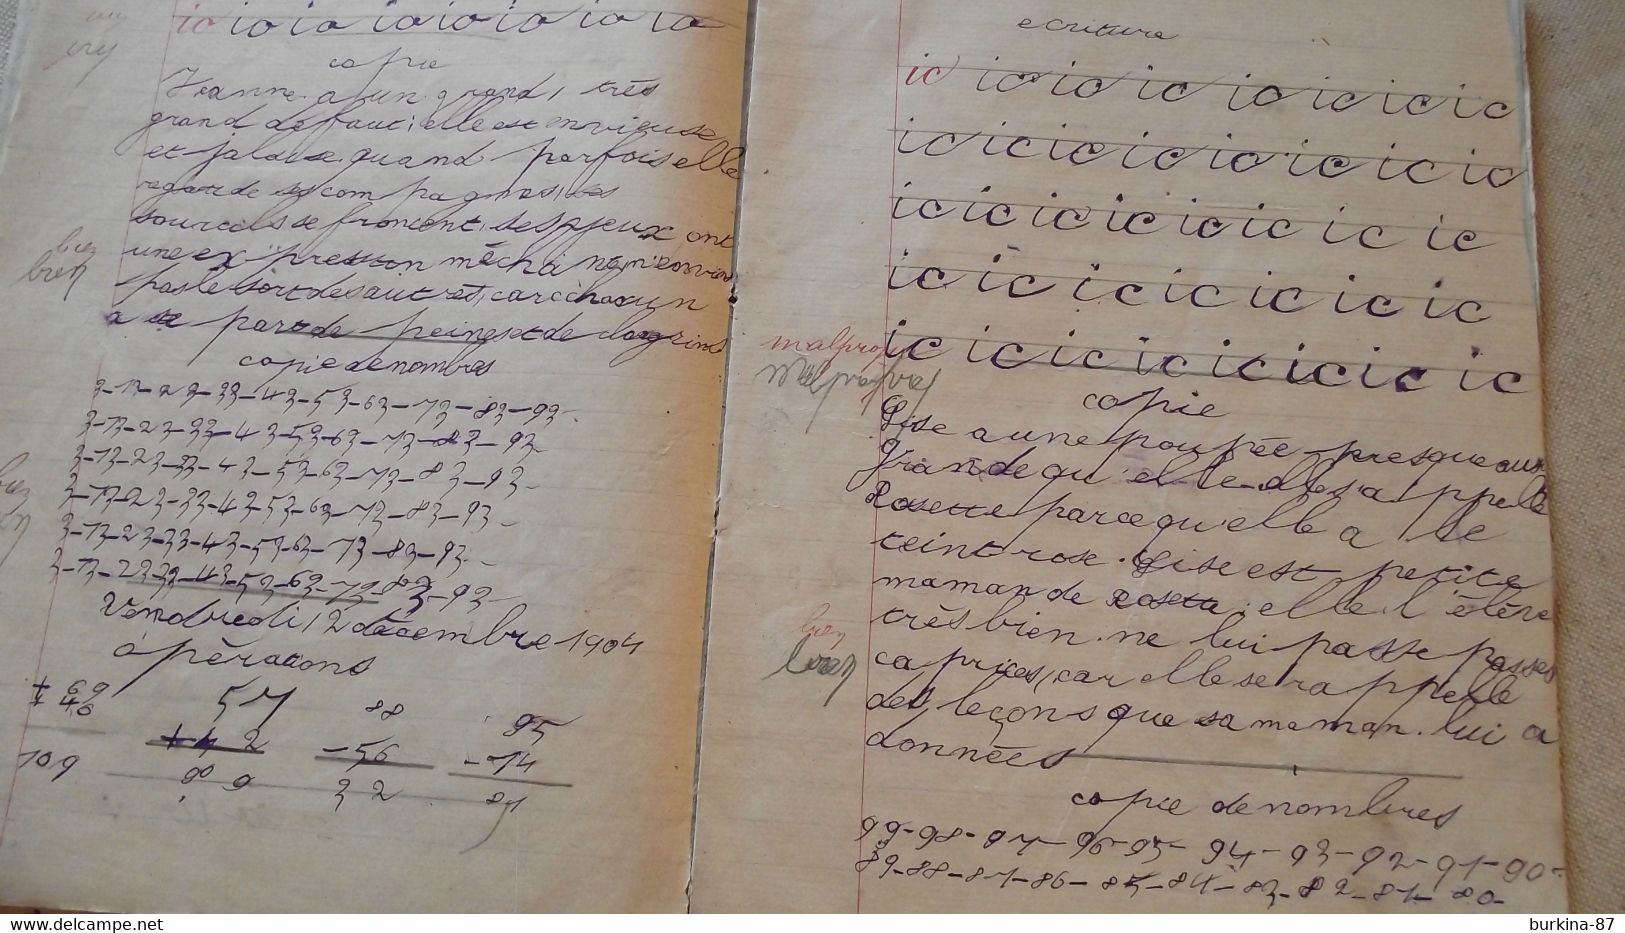 io io io io io io io io
copie
Jeanne a un grand, très
grand défaut; elle est envieuse
et jalouse quand parfois elle
regarde ses compagnes, les
sourcils se froncent, ses yeux ont
une expression méchante n'envions
pas le sort des autres, car chacun
a sa part de peines et de
copie de nombres
3-13-23-33-43-53-63-73-83-93-
3-13-23-33-43-53-63-73-83-93-
3-13-23-33-43-53-63-73-83-93-
3-13-23-33-43-53-63-73-83-93-
3-13-23-33-43-53-63-73-83-93-
3-13-23-33-43-53-63-73-83-93-
bien
bien
Vendredi 2 décembre 1904
opérations
69 57 88 95
+ 40 + 42 - 56 - 14
109 99 32 81
ecriture
ic ic ic ic ic ic ic ic
ic ic ic ic ic ic ic ic ic
ic ic ic ic ic ic ic ic ic
ic ic ic ic ic ic ic
ic ic ic ic ic ic ic ic
malpropre
malpropre
copie
Lise a une poupée presque aussi
grande qu'elle elle s'appelle
Rosette parce qu'elle a le
teint rose. Lise est petite
maman de Rosette; elle l'élève
très bien. ne lui passe passe
caprices, car elle se rappelle
des leçons que sa maman lui a
données
bien
bien
copie de nombres
99-98-97-96-95-94-93-92-91-90-
89-88-87-86-85-84-83-82-81-80-
burkina-87